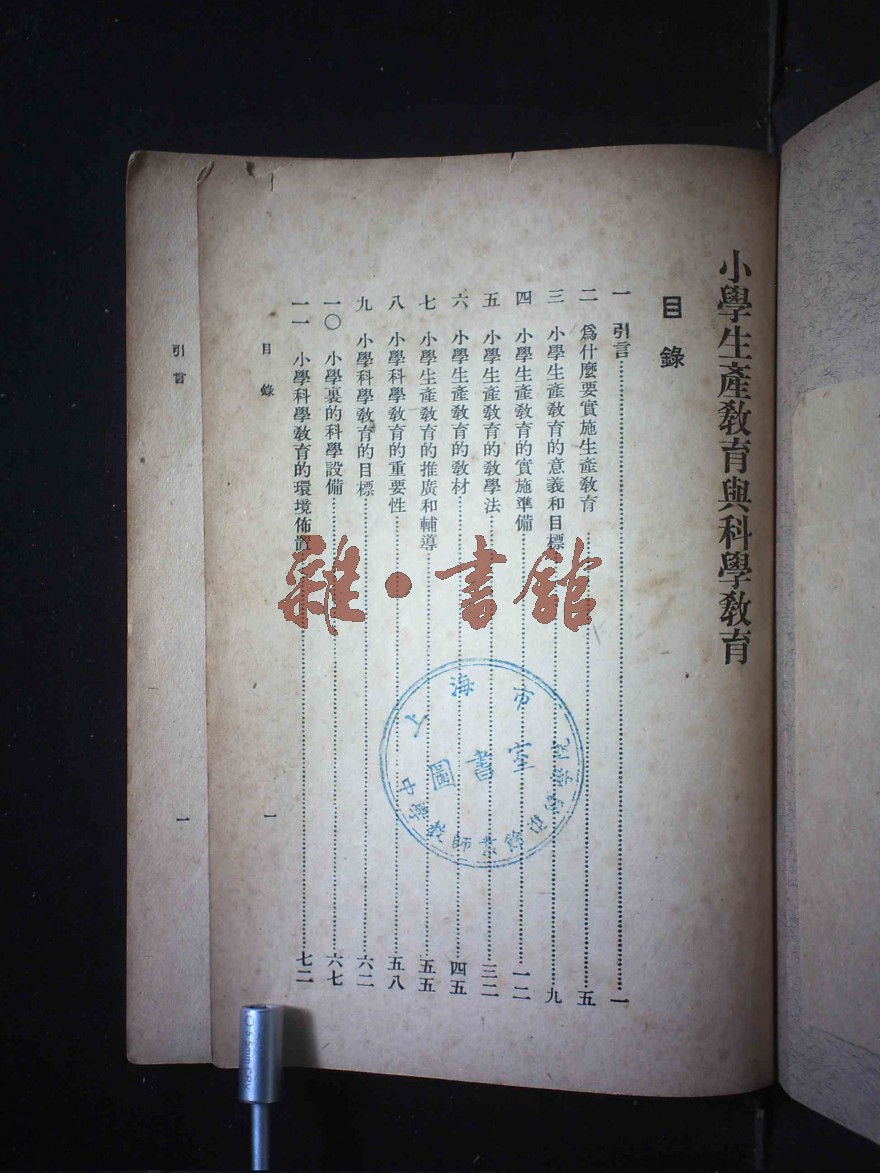 小學生產敎育與科學敎育
目錄
一 引言……一
二 爲什麼要實施生產敎育……五
三 小學生產敎育的意義和目標……九
四 小學生產敎育的實施準備……一二
五 小學生產敎育的敎學法……三二
六 小學生產敎育的敎材……四五
七 小學生產敎育的推廣和輔導……五五
八 小學科學敎育的重要性……五八
九 小學科學敎育的目標……六二
一〇 小學裏的科學設備……六七
一一 小學科學敎育的環境佈置……七二
目錄 一
引言 一
雜·書館
上海市
圖書室
中學教師業餘進修學院